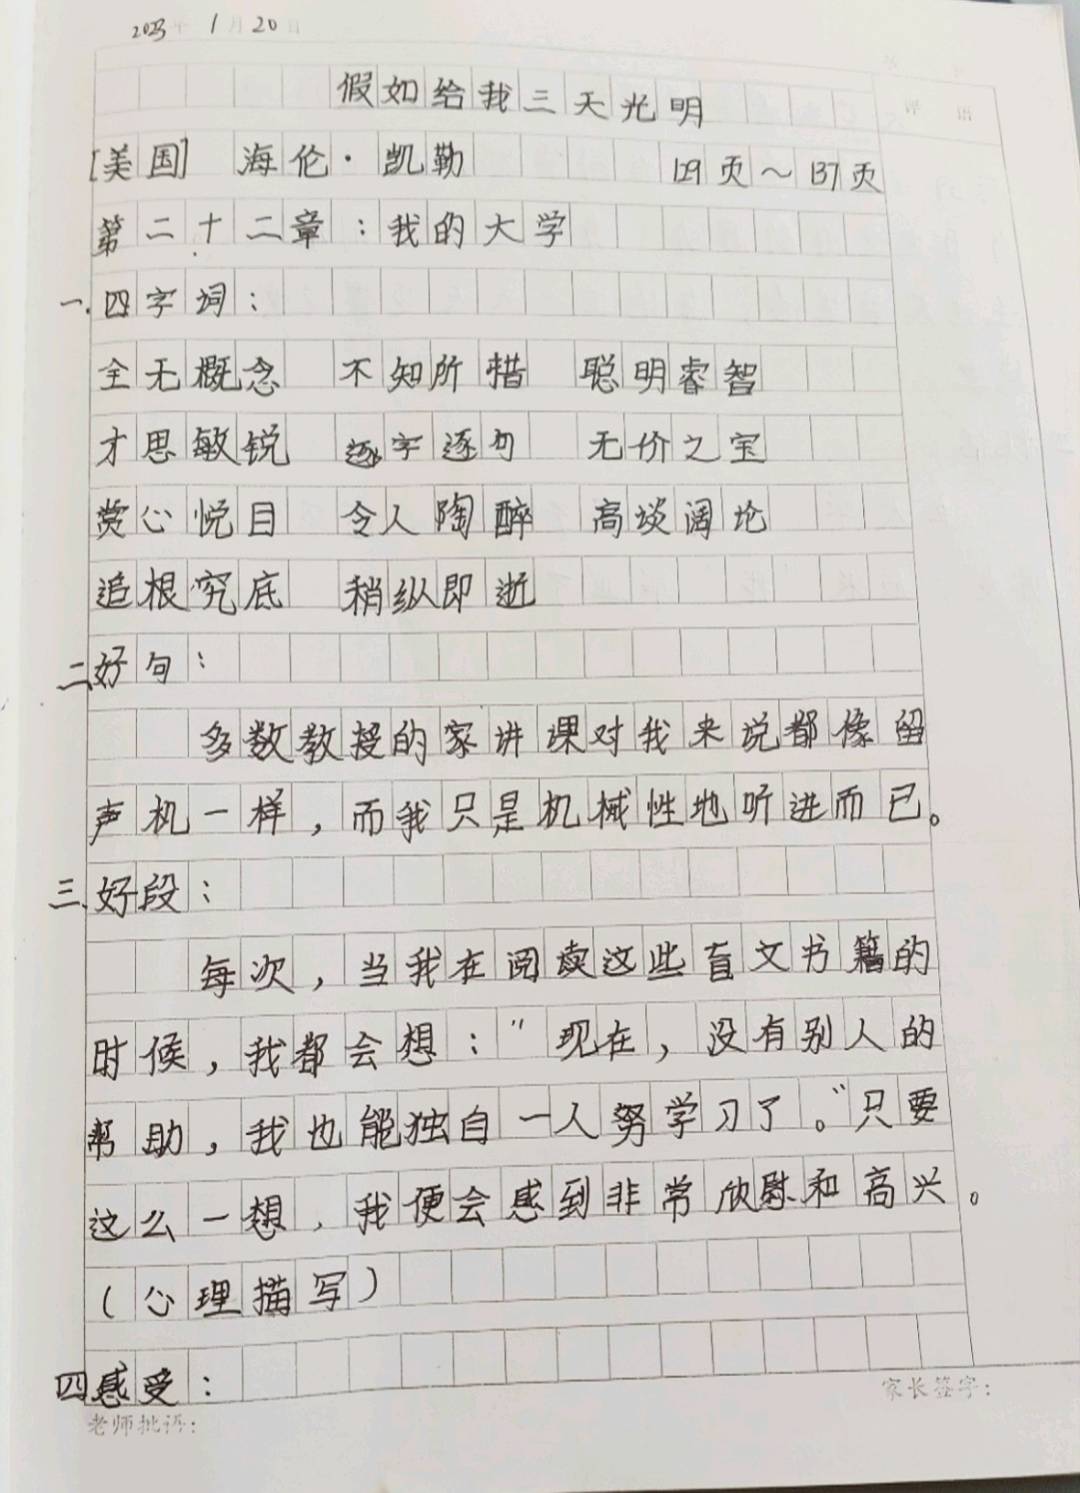 2023年 1月20日
评 语
假如给我三天光明
[美国] 海伦·凯勒 129页~137页
第二十二章：我的大学
一.四字词：
全无概念 不知所措 聪明睿智
才思敏锐 逐字逐句 无价之宝
赏心悦目 令人陶醉 高谈阔论
追根究底 稍纵即逝
二.好句：
多数教授的家讲课对我来说都像留
声机一样，而我只是机械性地听进而已。
三.好段：
每次，当我在阅读这些盲文书籍的
时候，我都会想："现在，没有别人的
帮助，我也能独自一人努学习了。"只要
这么一想，我便会感到非常欣慰和高兴。
(心理描写)
四感受：
家长签字：
老师批语：